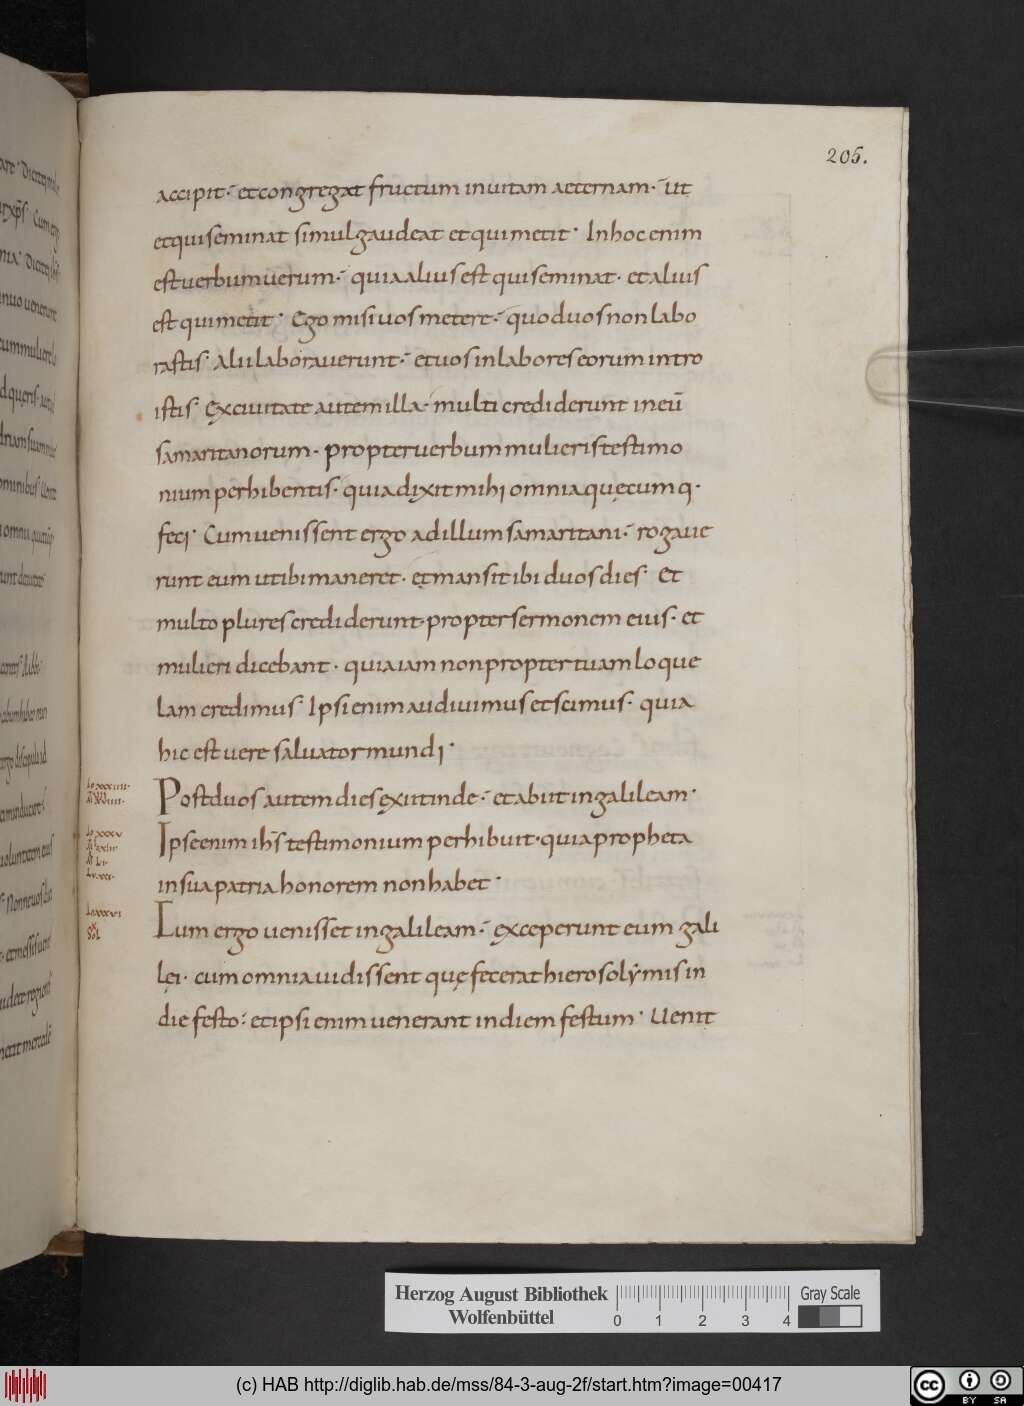 205.
accipit· et congregat fructum in uitam aeternam· ut
et qui seminat simul gaudeat et qui metit· In hoc enim
est uerbum uerum· quia alius est qui seminat· et alius
est qui metit· Ego misi uos metere· quod uos non labo
rastis· Alii laborauerunt· et uos in labores eorum intro
istis· Ex ciuitate autem illa· multi crediderunt in eū
samaritanorum· propter uerbum mulieris testimo
nium perhibentis· quia dixit mihi omnia quęcumq·
feci· Cum uenissent ergo ad illum samaritani· rogaue
runt eum ut ibi maneret· et mansit ibi duos dies· Et
multo plures crediderunt propter sermonem eius· et
mulieri dicebant· quia iam non propter tuam loque
lam credimus· Ipsi enim audiuimus et scimus· quia
hic est uere saluator mundi·
Post duos autem dies exiit inde· et abiit in galileam·
Ipse enim ihs̄ testimonium perhibuit· quia propheta
in sua patria honorem non habet·
Cum ergo uenisset in galileam· exceperunt eum gali
lęi· cum omnia uidissent quę fecerat hierosolymis in
die festo· et ipsi enim uenerant in diem festum· Uenit
Herzog August Bibliothek
Wolfenbüttel
0 1 2 3 4
Gray Scale
(c) HAB http://diglib.hab.de/mss/84-3-aug-2f/start.htm?image=00417
cc BY SA